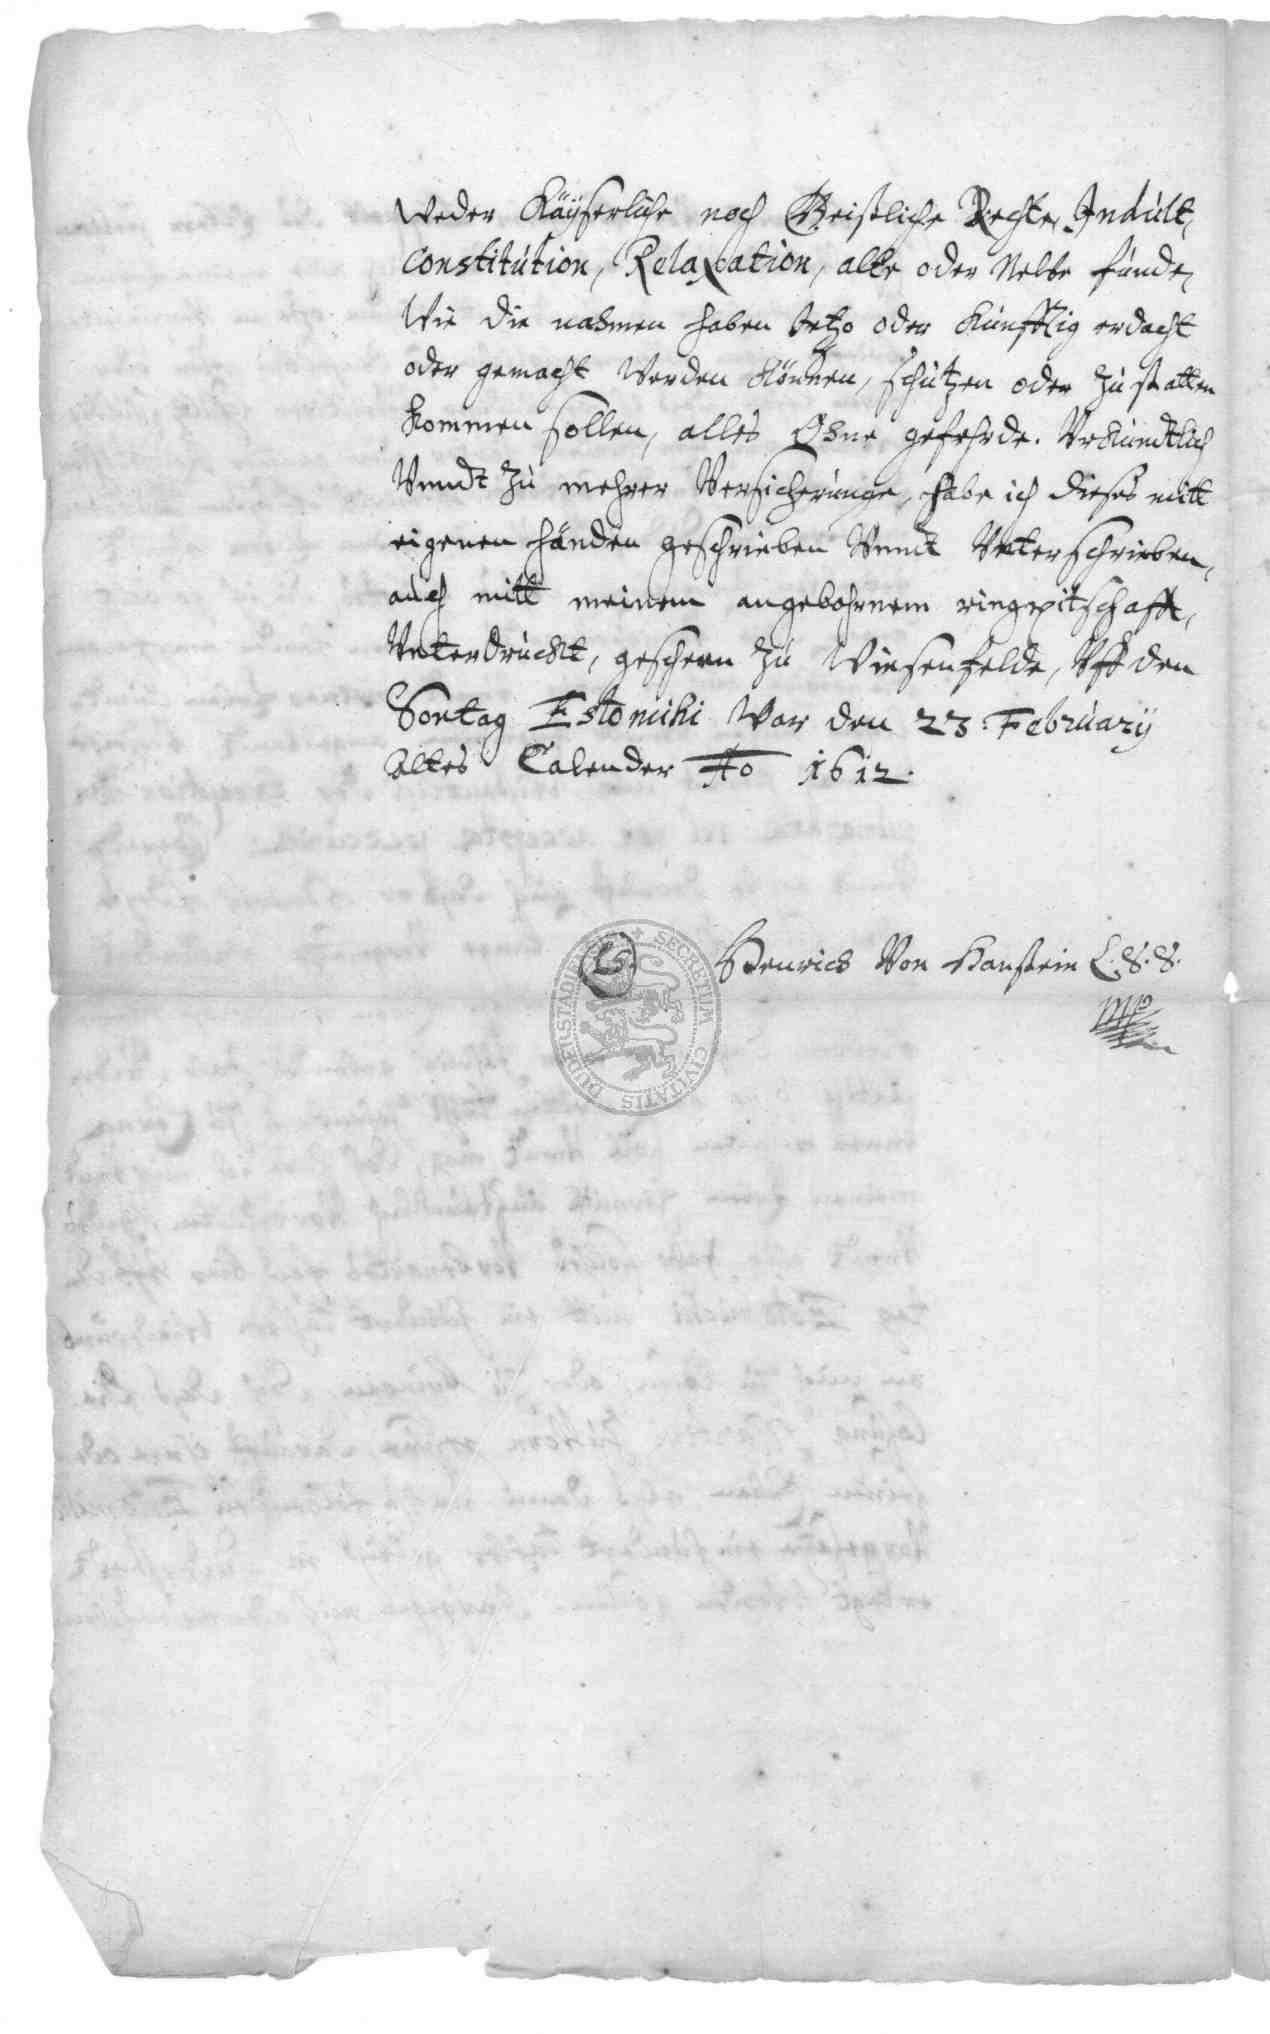 Weder Käÿserliche noch Geistliche Rechte, Indult,
Constitution, Relaxation, alte oder Newe fünde,
Wie die nahmen haben Jetzo oder Künfftig erdacht
oder gemacht Werden Können, schützen oder zu statten
kommen sollen, alles Ohne gefehrde. Vrkundtlich
Vnndt zu mehrer Versicherunge, habe ich dieses mitt
eigenen händen geschrieben Vnndt Vnterschrieben,
auch mitt meinem angebohrnem ringpitschafft,
Vnterdruckt, geschehen zu Wiesenfelde, Vff den
Sontag Estomihi War den 23. February
Altes Calender Ao 1612.
LS. Henrich Von Hanstein
mp
SECRETUM CIVITATIS DUDERSTADIENSIS